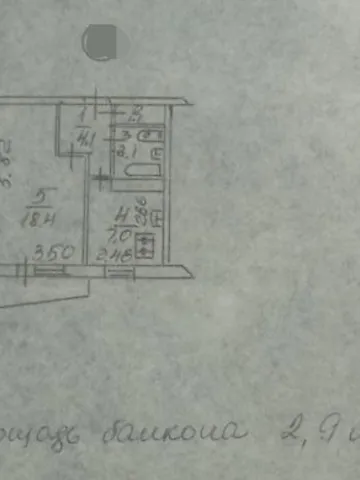 1
4,1
3
3,1
5
18,4
4
7,0
2,86
3,50
2,48
балкона 2,9